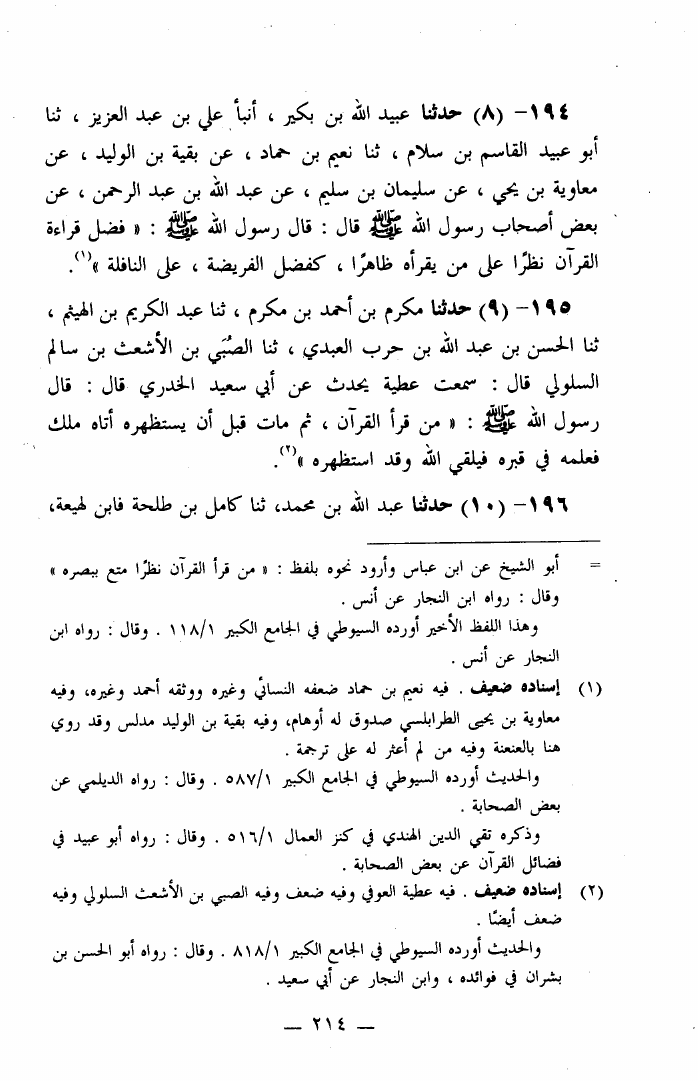 ١٩٤- (٨) حدثنا عبيد الله بن بكير ، أنبأ علي بن عبد العزيز ، ثنا
أبو عبيد القاسم بن سلام ، ثنا نعيم بن حماد ، عن بقية بن الوليد ، عن
معاوية بن يحي ، عن سليمان بن سليم ، عن عبد الله بن عبد الرحمن ، عن
بعض أصحاب رسول الله ﷺ قال : قال رسول الله ﷺ : « فضل قراءة
القرآن نظرًا على من يقرأه ظاهرًا ، كفضل الفريضة ، على النافلة »(١).
١٩٥- (٩) حدثنا مكرم بن أحمد بن مكرم ، ثنا عبد الكريم بن الهيثم ،
ثنا الحسن بن عبد الله بن حرب العبدي ، ثنا الصُبَي بن الأشعث بن سالم
السلولي قال : سمعت عطية يحدث عن أبي سعيد الخدري قال : قال
رسول الله ﷺ : « من قرأ القرآن ، ثم مات قبل أن يستظهره أتاه ملك
فعلمه في قبره فيلقي الله وقد استظهره »(٢).
١٩٦- (١٠) حدثنا عبد الله بن محمد، ثنا كامل بن طلحة فابن لهيعة،
= أبو الشيخ عن ابن عباس وأرود نحوه بلفظ : « من قرأ القرآن نظرًا متع ببصره »
وقال : رواه ابن النجار عن أنس .
وهذا اللفظ الأخير أورده السيوطي في الجامع الكبير ١١٨/١ . وقال : رواه ابن
النجار عن أنس .
(١) إسناده ضعيف . فيه نعيم بن حماد ضعفه النسائي وغيره ووثقه أحمد وغيره، وفيه
معاوية بن يحيى الطرابلسي صدوق له أوهام، وفيه بقية بن الوليد مدلس وقد روي
هنا بالعنعنة وفيه من لم أعثر له على ترجمة .
والحديث أورده السيوطي في الجامع الكبير ٥٨٧/١ . وقال : رواه الديلمي عن
بعض الصحابة .
وذكره تقي الدين الهندي في كنز العمال ٥١٦/١ . وقال : رواه أبو عبيد في
فضائل القرآن عن بعض الصحابة .
(٢) إسناده ضعيف . فيه عطية العوفي وفيه ضعف وفيه الصبي بن الأشعث السلولي وفيه
ضعف أيضًا .
والحديث أورده السيوطي في الجامع الكبير ٨١٨/١ . وقال : رواه أبو الحسن بن
بشران في فوائده ، وابن النجار عن أبي سعيد .
— ٢١٤ —